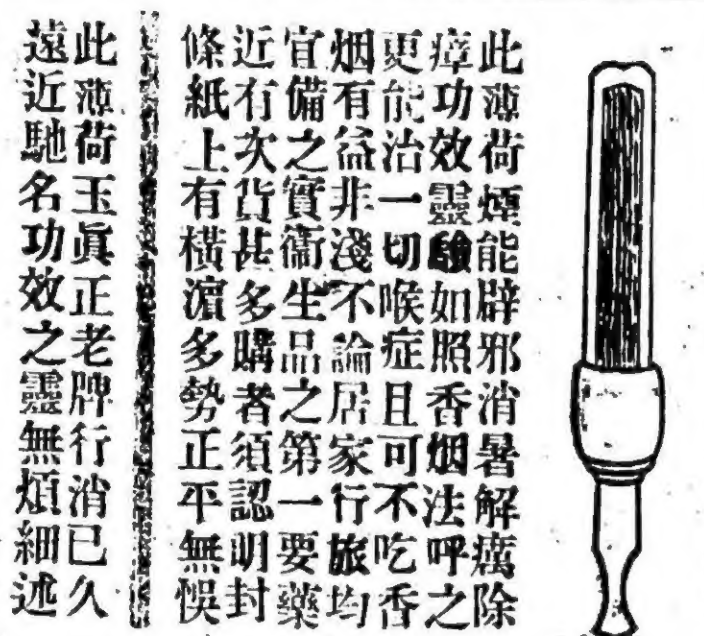 此薄荷煙能辟邪消暑解癘除
瘴功效靈驗如照香烟法呼之
更能治一切喉症且可不吃香
烟有益非淺不論居家行旅均
宜備之實衞生品之第一要藥
近有次貨甚多購者須認明封
條紙上有橫濵多勢正平無悞
此薄荷玉眞正老牌行消已久
遠近馳名功效之靈無煩細述